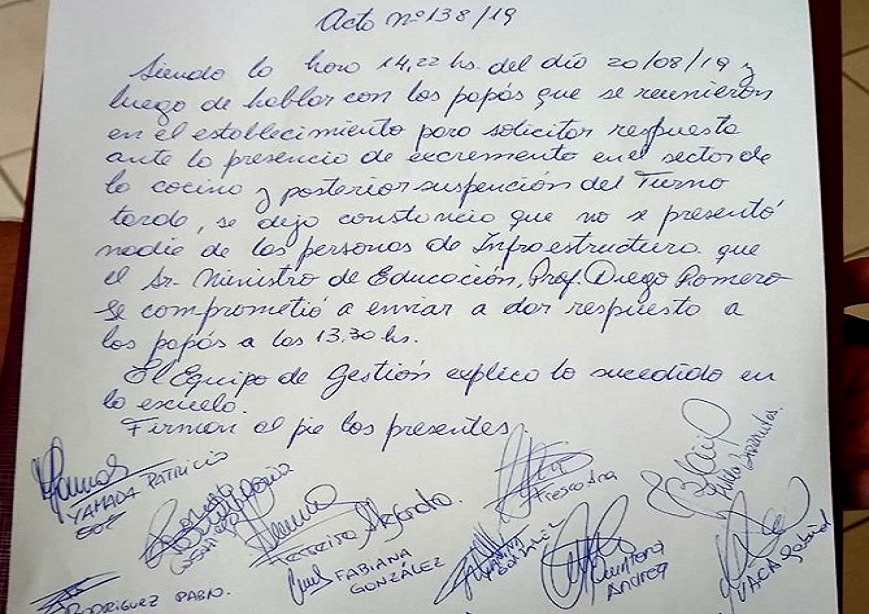 Acta nº 138/19
Siendo la hora 14,22 hs. del día 20/08/19 y
luego de hablar con los papás que se reunieron
en el establecimiento para solicitar respuesta
ante la presencia de excremento en el sector de
la cocina y posterior suspención del Turno
tarde, se deja constancia que no se presentó
nadie de las personas de Infraestructura que
el Sr. Ministro de Educación, Prof. Diego Romero
se comprometió a enviar a dar respuesta a
los papás a las 13.30 hs.
El Equipo de Gestión explico lo sucedido en
la escuela.
Firman al pie los presentes.
YAMADA PATRICIA
Fresco Ana
Ferreira Alejandra.
FABIANA
GONZÁLEZ
Quintana
Andrea
VACA Gabriel
RODRIGUEZ PABLO.